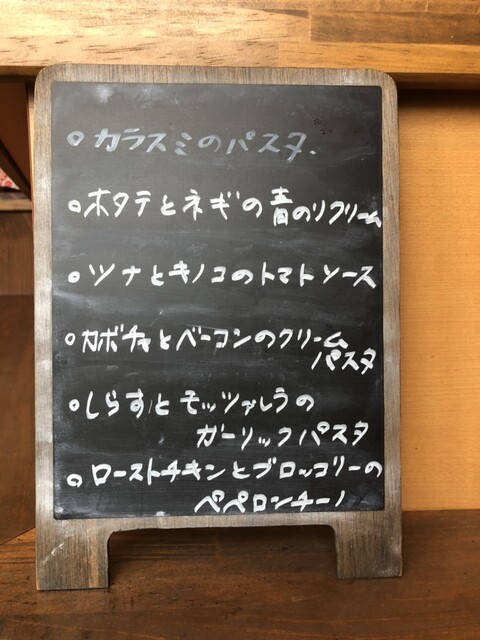 ○カラスミのパスタ.
○ホタテとネギの青のりクリーム
○ツナとキノコのトマトソース
○カボチャとベーコンのクリーム
パスタ
○しらすとモッツァレラの
ガーリックパスタ
○ローストチキンとブロッコリーの
ペペロンチーノ